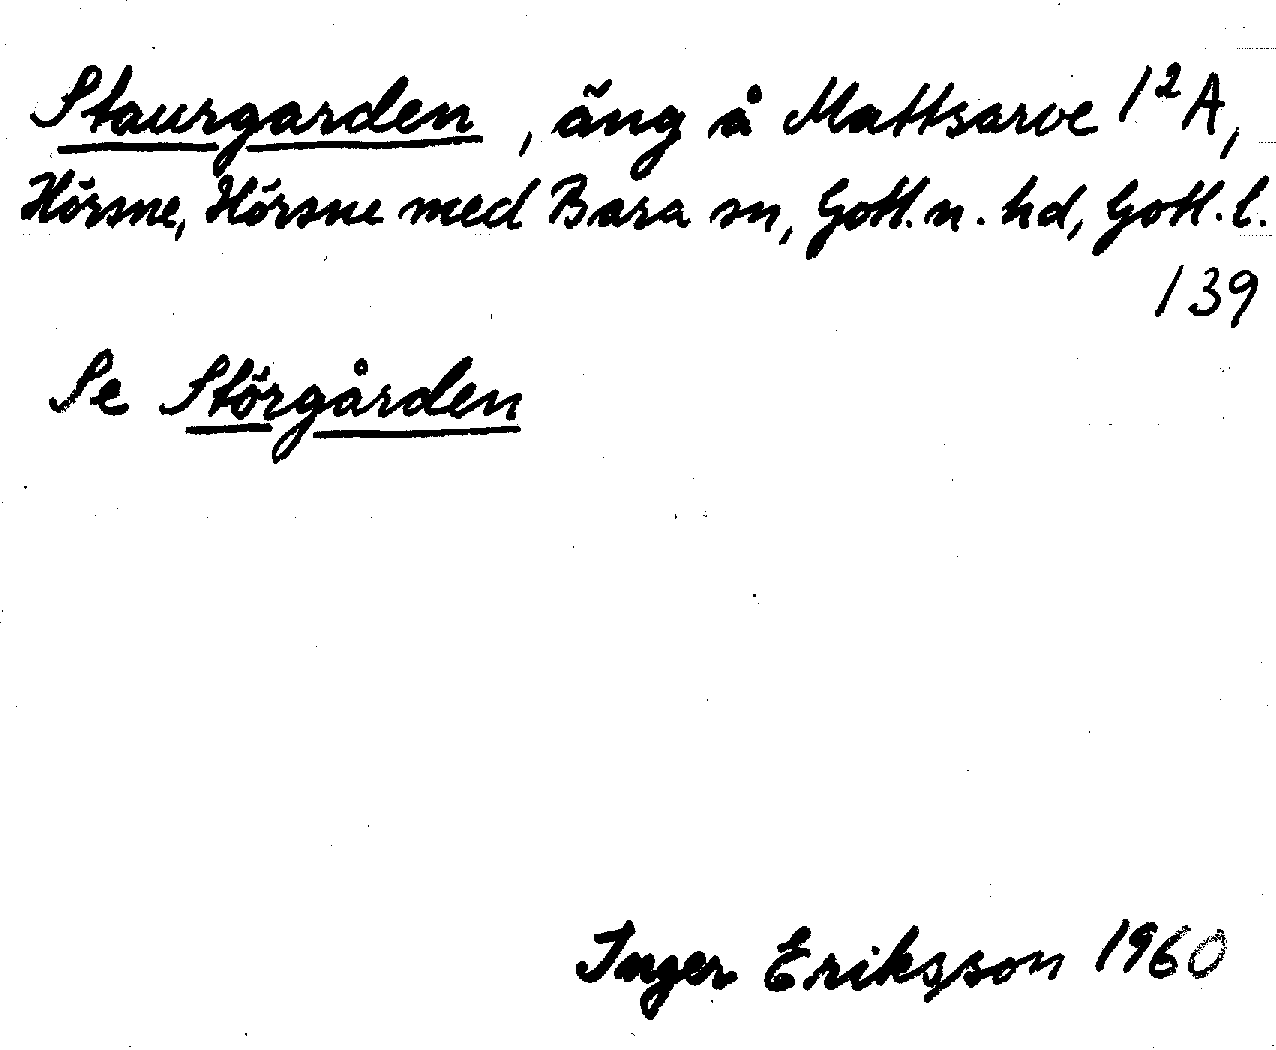 Staurgarden, äng å Mattsarve 1²A,
Hörsne, Hörsne med Bara sn, Gotl. n. hd, Gotl. l.
139
Se Störgården
Inger Eriksson 1960